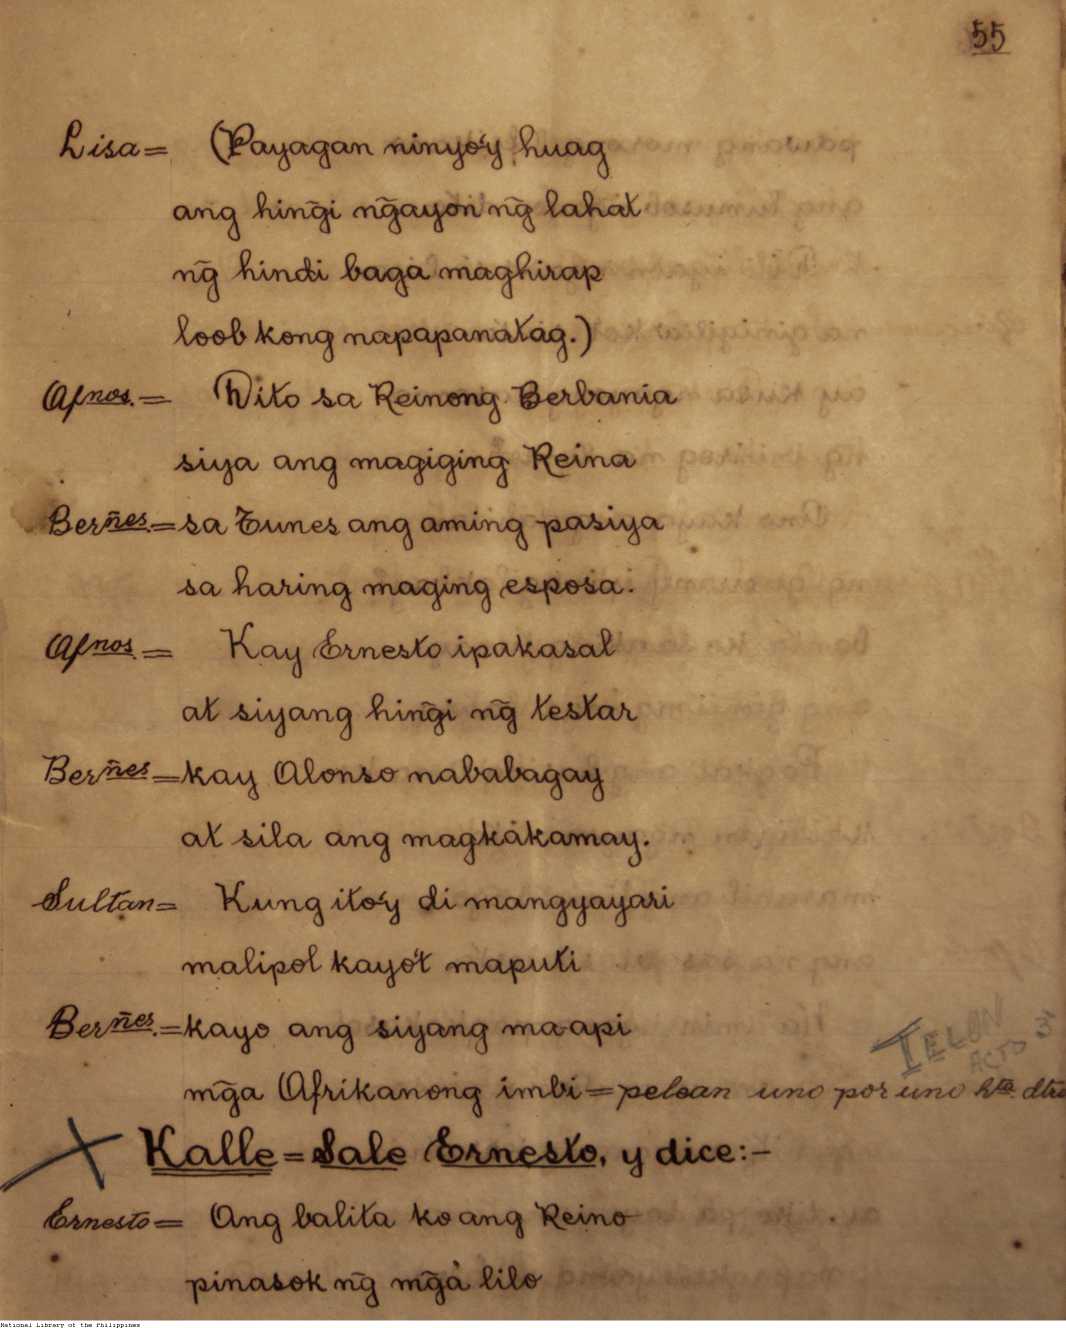 55
Lisa= (Payagan ninyo'y huag
ang hin͠gi n͠gayon n͠g lahat
n͠g hindi baga maghirap
loob kong napapanatag.)
Afnos.= Dito sa Reinong Berbania
siya ang magiging Reina
Berñes.= sa Tunes ang aming pasiya
sa haring maging esposa.
Afnos.= Kay Ernesto ipakasal
at siyang hin͠gi n͠g testar
Berñes= kay Alonso nababagay
at sila ang magkákamay.
Sultan= Kung ito'y di mangyayari
malipol kayo't maputi
Berñes.= kayo ang siyang ma-api
m͠ga Afrikanong imbi= pelean uno por uno hta. dtro
TELON
ACTO 3º
Kalle = Sale Ernesto, y dice:-
Ernesto= Ang balita ko ang Reino
pinasok n͠g m͠gà lilo
National Library of the Philippines